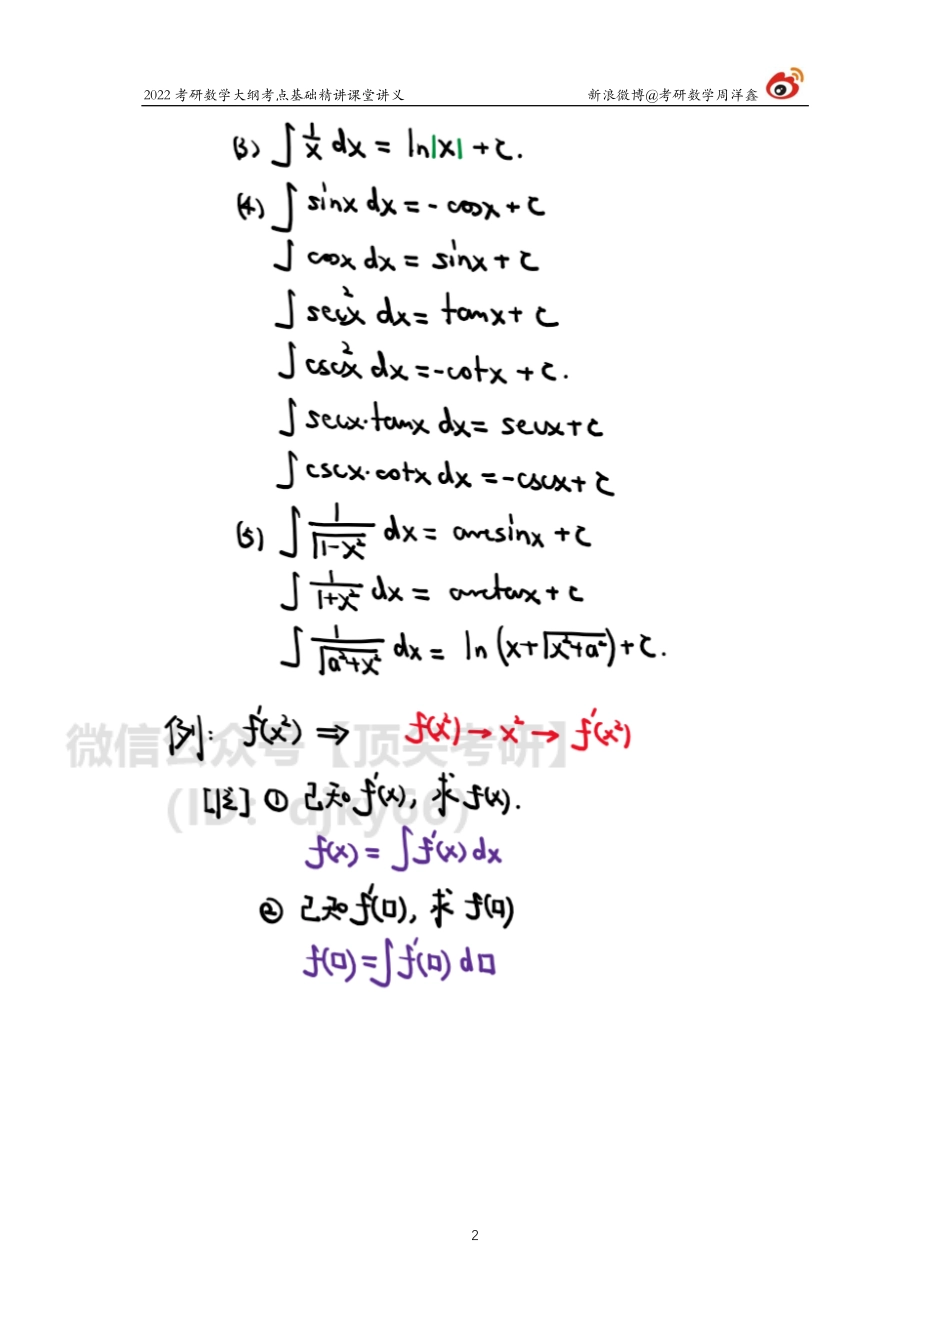 2022 考研数学大纲考点基础精讲课堂讲义 新浪微博@考研数学周洋鑫
(3) ∫ 1/x dx = ln|x| + C.
(4) ∫ sinx dx = - cosx + C
∫ cosx dx = sinx + C
∫ sec²x dx = tanx + C
∫ csc²x dx = -cotx + C.
∫ secx·tanx dx = secx + C
∫ cscx·cotx dx = -cscx + C
(5) ∫ 1/√(1-x²) dx = arcsinx + C
∫ 1/(1+x²) dx = arctanx + C
∫ 1/√(a²+x²) dx = ln (x+√(x²+a²)) + C.
例: f'(x²) ⇒ f(x²) → x² → f'(x²)
微信公众号【顶尖考研】
[注] ① 已知 f'(x), 求 f(x).
(ID: djky66)
f(x) = ∫ f'(x) dx
② 已知 f'(□), 求 f(□)
f(□) = ∫ f'(□) d□
2